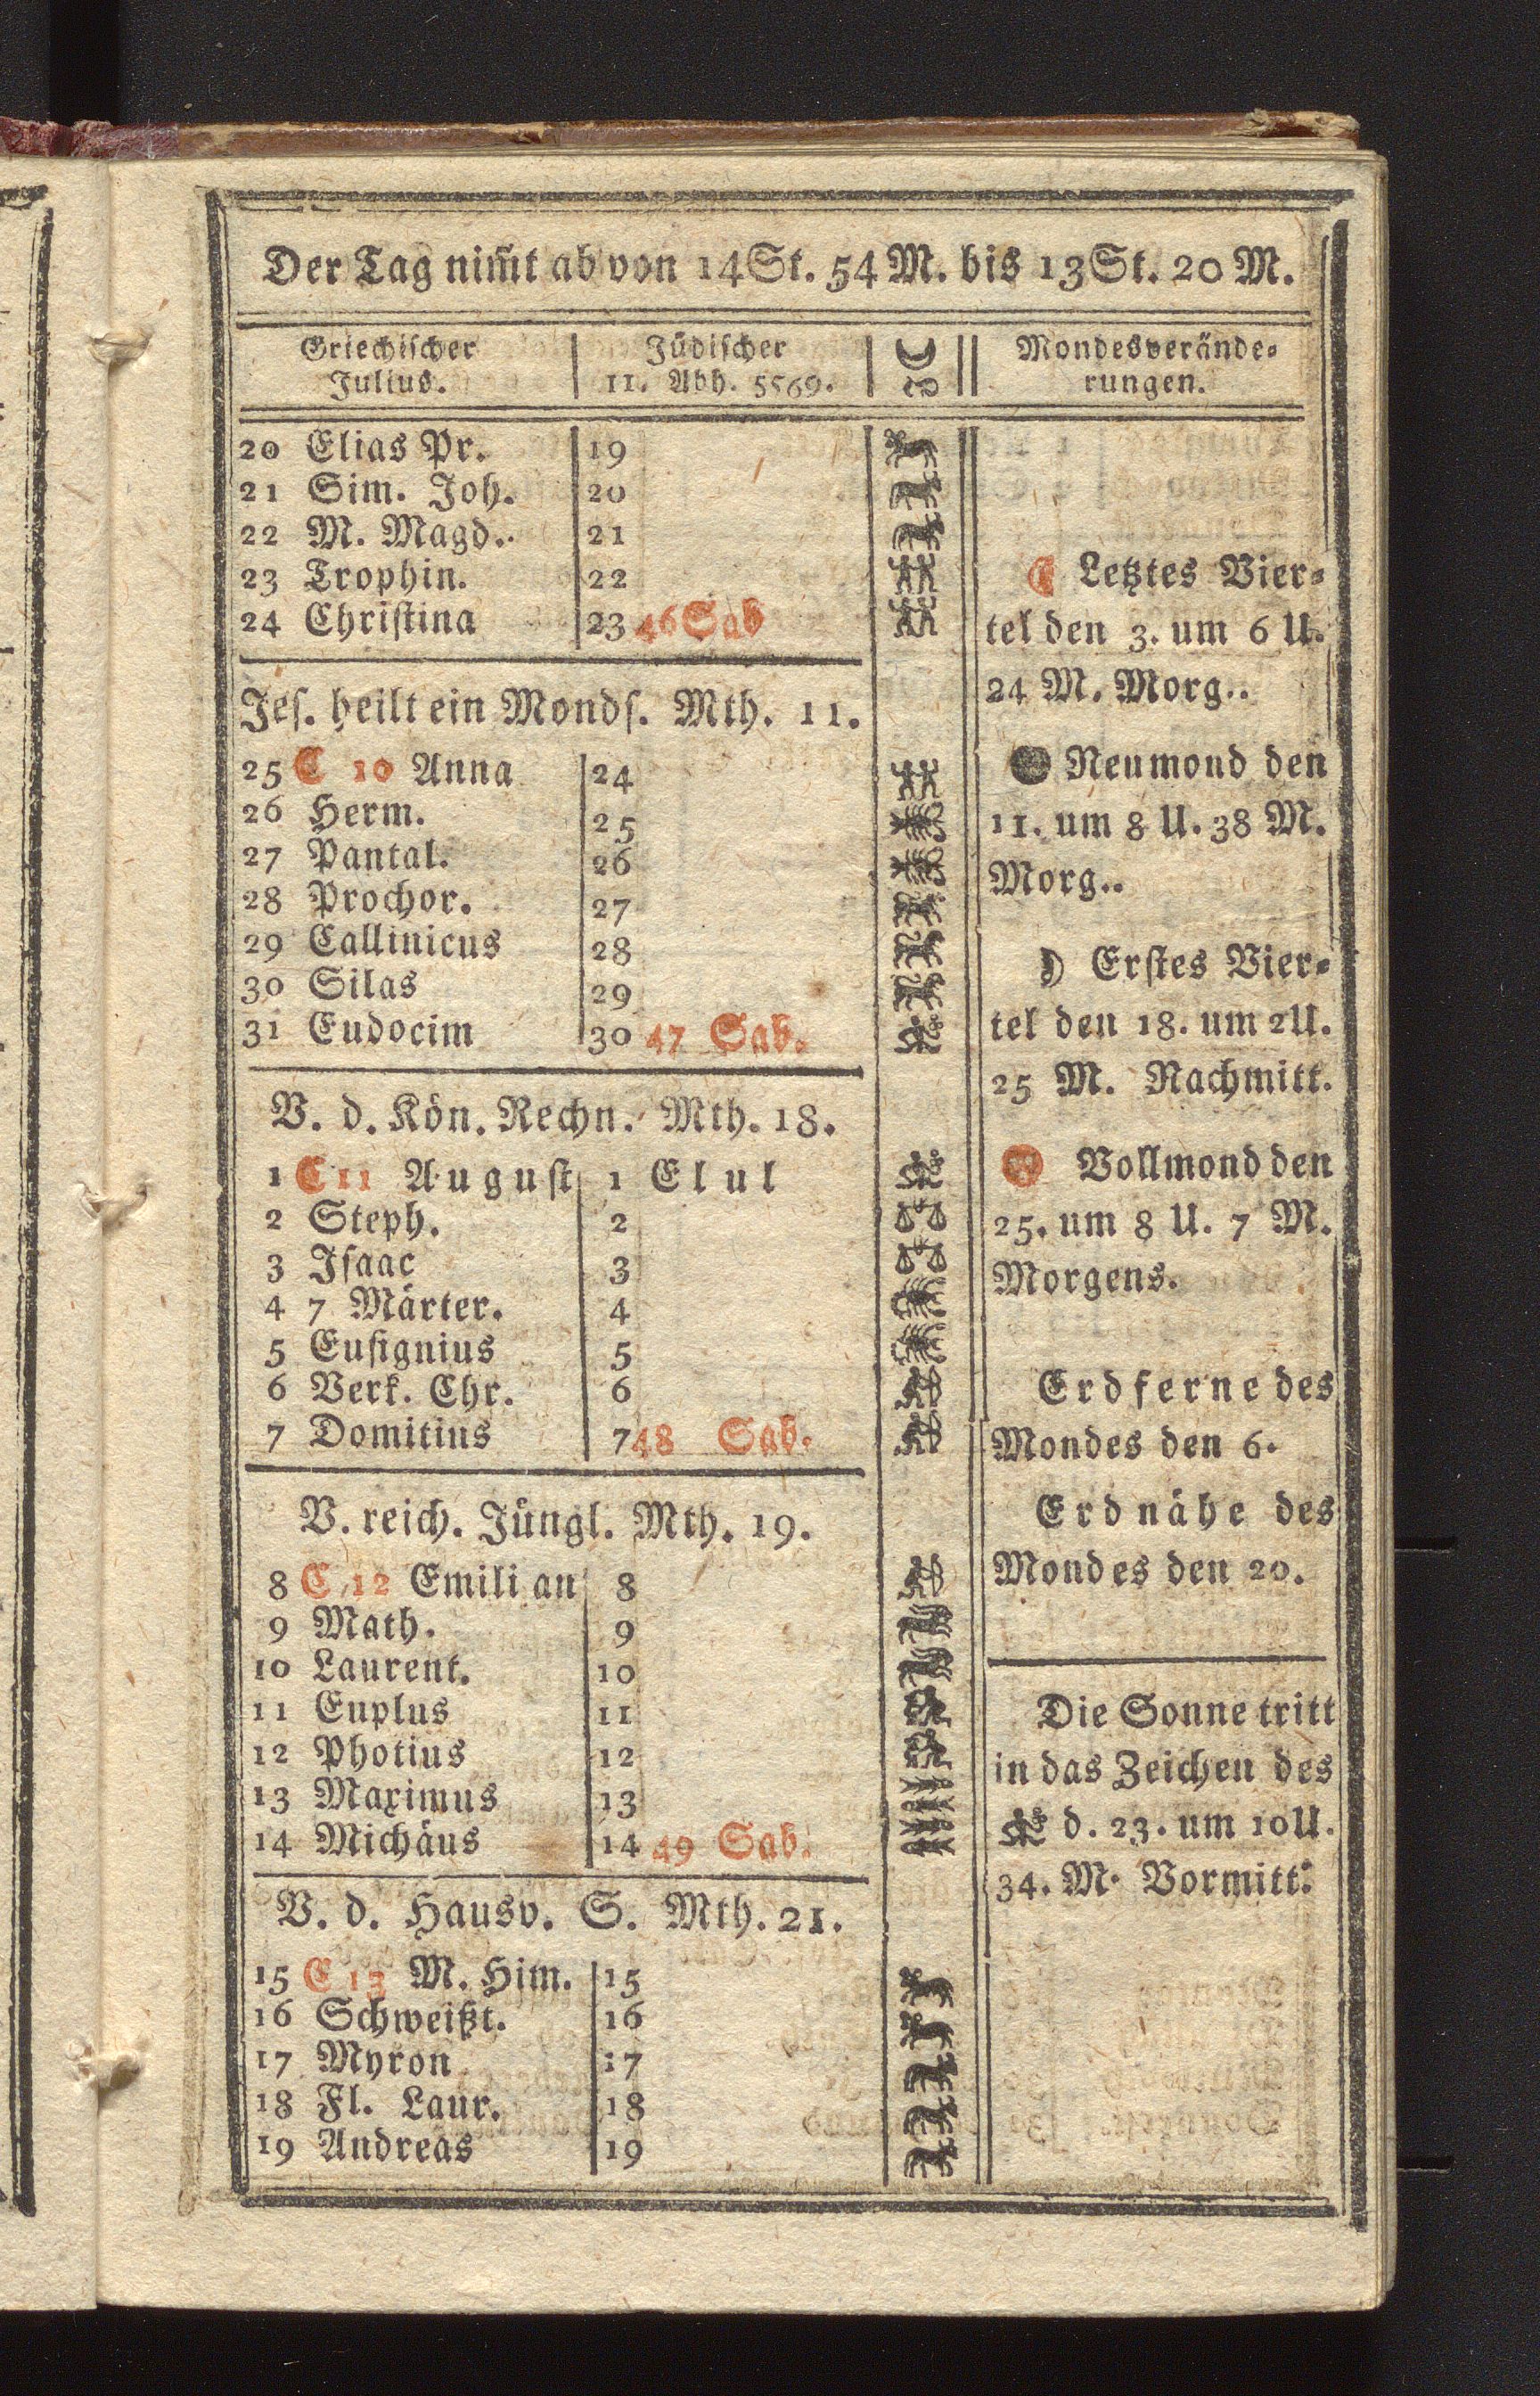 Der Tag nim̄t ab von 14 St. 54 M. bis 13 St. 20 M.
Griechischer Julius.
Jüdischer 11. Abh. 5569.
Mondesverände-
rungen.
20 Elias Pr. 19
21 Sim. Joh. 20
22 M. Magd.. 21
23 Trophin. 22
24 Christina 23 46 Sab
Jes. heilt ein Monds. Mth. 11.
25 C 10 Anna 24
26 Herm. 25
27 Pantal. 26
28 Prochor. 27
29 Callinicus 28
30 Silas 29
31 Eudocim 30 47 Sab.
V. d. Kön. Rechn. Mth. 18.
1 C 11 August 1 Elul
2 Steph. 2
3 Isaac 3
4 7 Märter. 4
5 Eusignius 5
6 Verk. Chr. 6
7 Domitius 7 48 Sab.
V. reich. Jüngl. Mth. 19.
8 C 12 Emilian 8
9 Math. 9
10 Laurent. 10
11 Euplus 11
12 Photius 12
13 Maximus 13
14 Michäus 14 49 Sab.
V. d. Hausv. S. Mth. 21.
15 C 13 M. Him. 15
16 Schweißt. 16
17 Myron 17
18 Fl. Laur. 18
19 Andreas 19
Letztes Vier-
tel den 3. um 6 U.
24 M. Morg..
Neumond den
11. um 8 U. 38 M.
Morg..
Erstes Vier-
tel den 18. um 2 U.
25 M. Nachmitt.
Vollmond den
25. um 8 U. 7 M.
Morgens.
Erdferne des
Mondes den 6.
Erdnähe des
Mondes den 20.
Die Sonne tritt
in das Zeichen des
d. 23. um 10 U.
34. M. Vormitt.